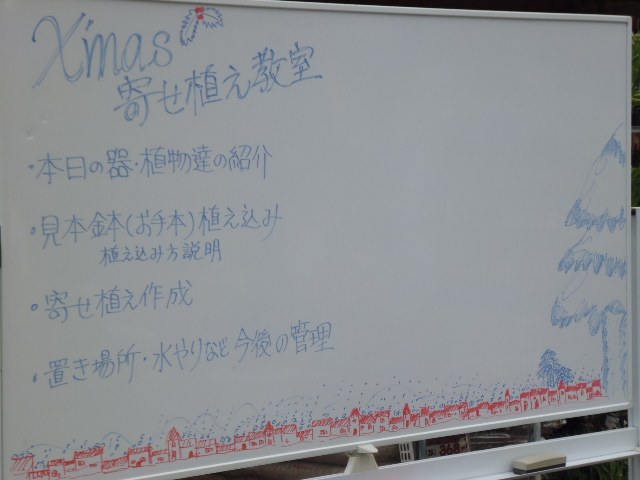 X'mas
寄せ植え教室
・本日の器・植物達の紹介
・見本鉢(お手本)植え込み
植え込み方説明
・寄せ植え作成
・置き場所・水やりなど今後の管理
368